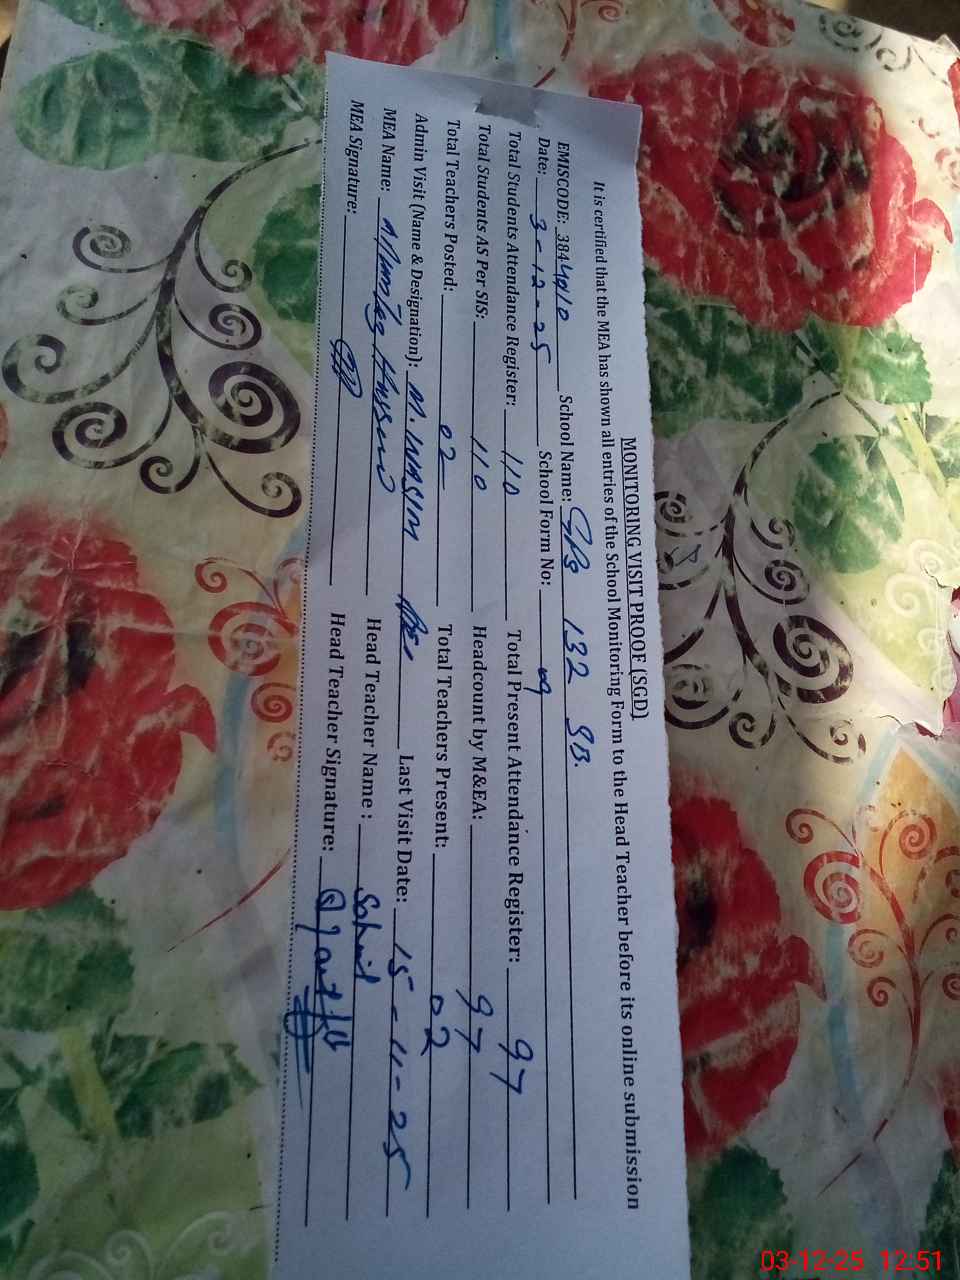 MONITORING VISIT PROOF (SGD)
It is certified that the MEA has shown all entries of the School Monitoring Form to the Head Teacher before its online submission
EMISCODE: 384 School Name: GPS 132 SB.
Date: 3-12-25 School Form No: 09
Total Students Attendance Register: 110 Total Present Attendance Register: 97
Total Students AS Per SIS: 110 Headcount by M&EA: 97
Total Teachers Posted: 02 Total Teachers Present: 02
Admin Visit (Name & Designation): M. WASIM Last Visit Date: 15-11-25
MEA Name: Mumtaz Hussain Head Teacher Name: Sohail
MEA Signature: Head Teacher Signature:
03-12-25 12:51